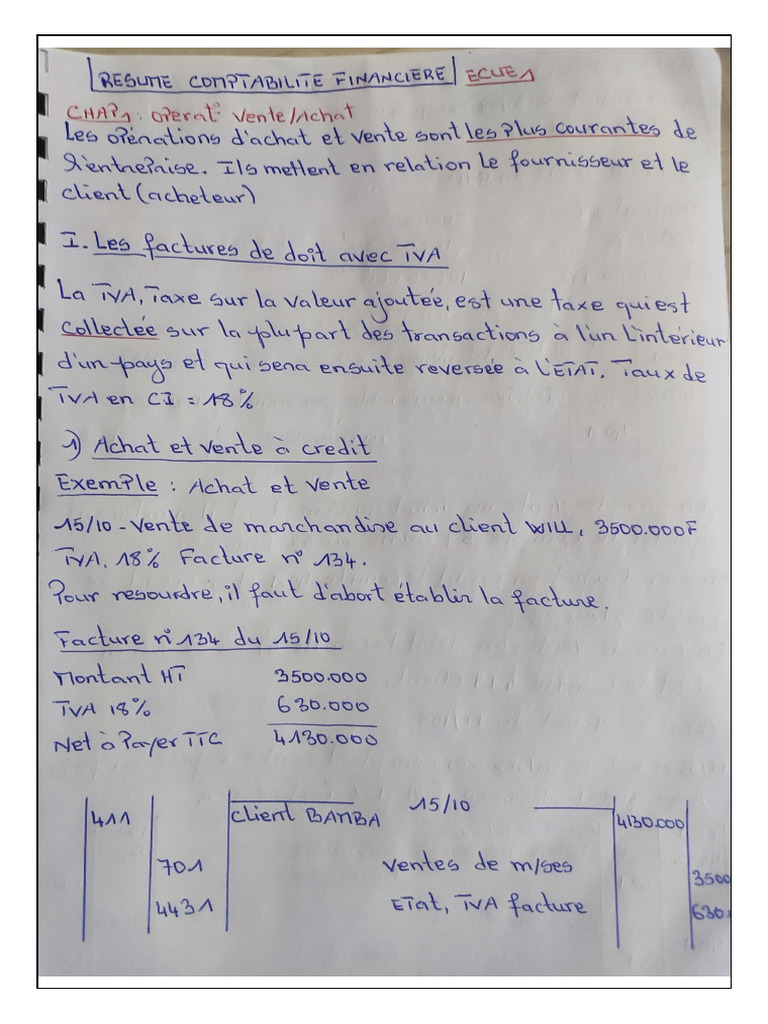 RESUME COMPTABILITE FINANCIERE ECUE1
CHAP1: operat° vente/Achat
Les opérations d'achat et vente sont les plus courantes de
l'entreprise. Ils mettent en relation le fournisseur et le
client (acheteur)
I. Les factures de doit avec TVA
La TVA, Taxe sur la valeur ajoutée, est une taxe qui est
collectée sur la plupart des transactions à l'un l'intérieur
d'un pays et qui sera ensuite reversée à l'ETAT. Taux de
TVA en CI = 18%
1) Achat et vente à credit
Exemple : Achat et vente
15/10 - Vente de marchandise au client WILL, 3500.000F
TVA. 18% Facture n° 134.
Pour resoudre, il faut d'abort établir la facture.
Facture n°134 du 15/10
Montant HT 3500.000
TVA 18% 630.000
Net à Payer TTC 4130.000
15/10
411 client BAMBA 4130.000
701 Ventes de m/ses 3500
4431 ETat, TVA facture 630.